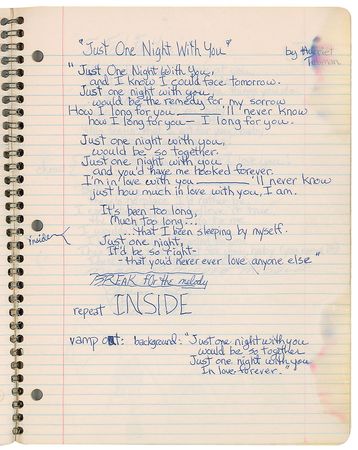 "Just One Night With You"
by Harriet Tubman
"Just One Night With You,
and I know I could face tomorrow.
Just one night with you,
would be the remedy for my sorrow
How I long for you ______'ll never know
how I long for you — I long for you.
Just one night with you,
would be so together.
Just one night with you
and you'd have me hooked forever.
I'm in love with you ______'ll never know
just how much in love with you, I am.
It's been too long,
Much too long...
...that I been sleeping by myself.
inside
Just one night,
It'd be so right-
- that you'd never ever love anyone else"
BREAK for the melody
repeat INSIDE
vamp out: background: "Just one night with you
would be so together
Just one night with you
In love forever."